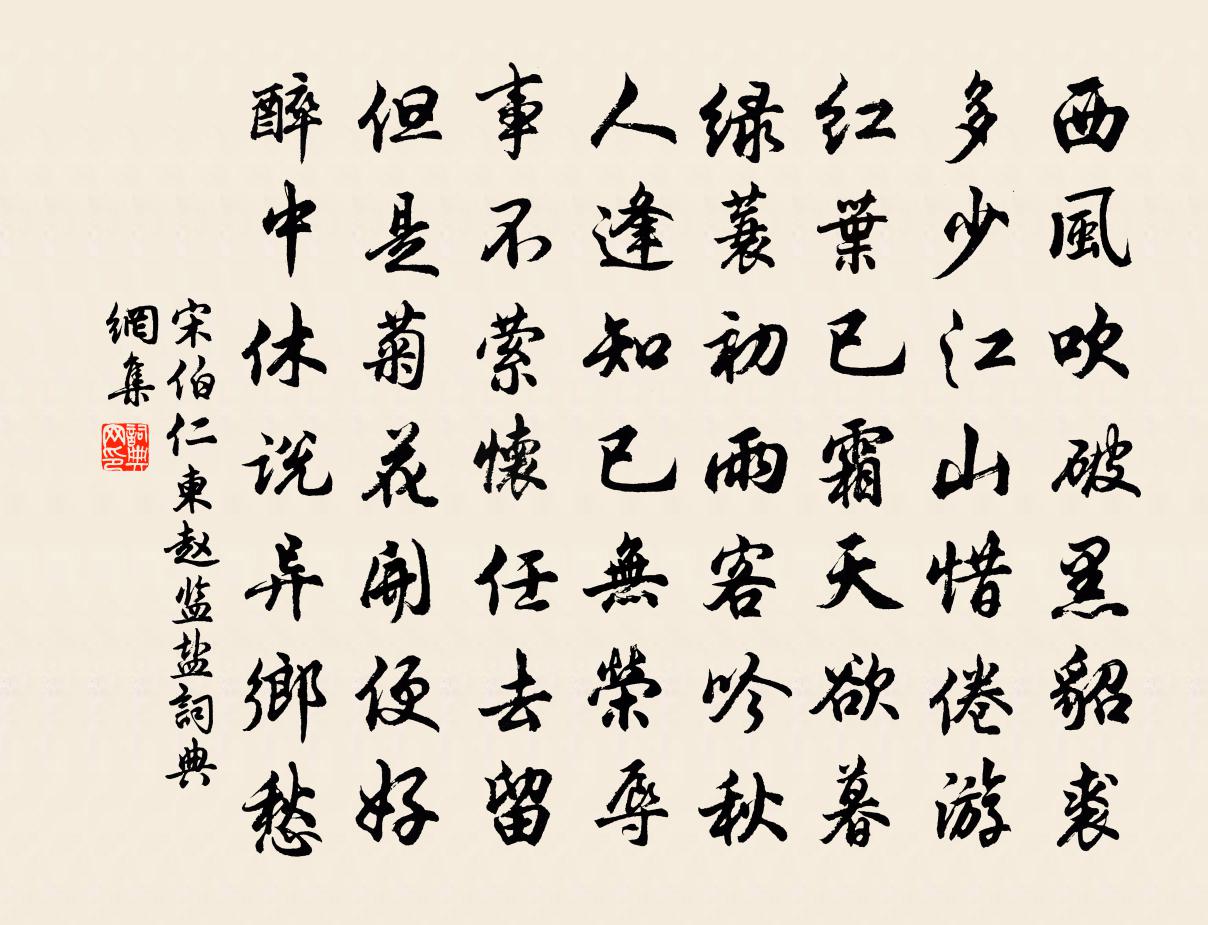 西風吹破黑貂裘
多少江山惜倦游
红葉已霜天欲暮
绿蓑初雨客吟秋
人逢知已無榮辱
事不萦懷任去留
但是菊花開便好
醉中休説异鄉愁
宋伯仁東赵监盐詞典
網集
詞典
网印